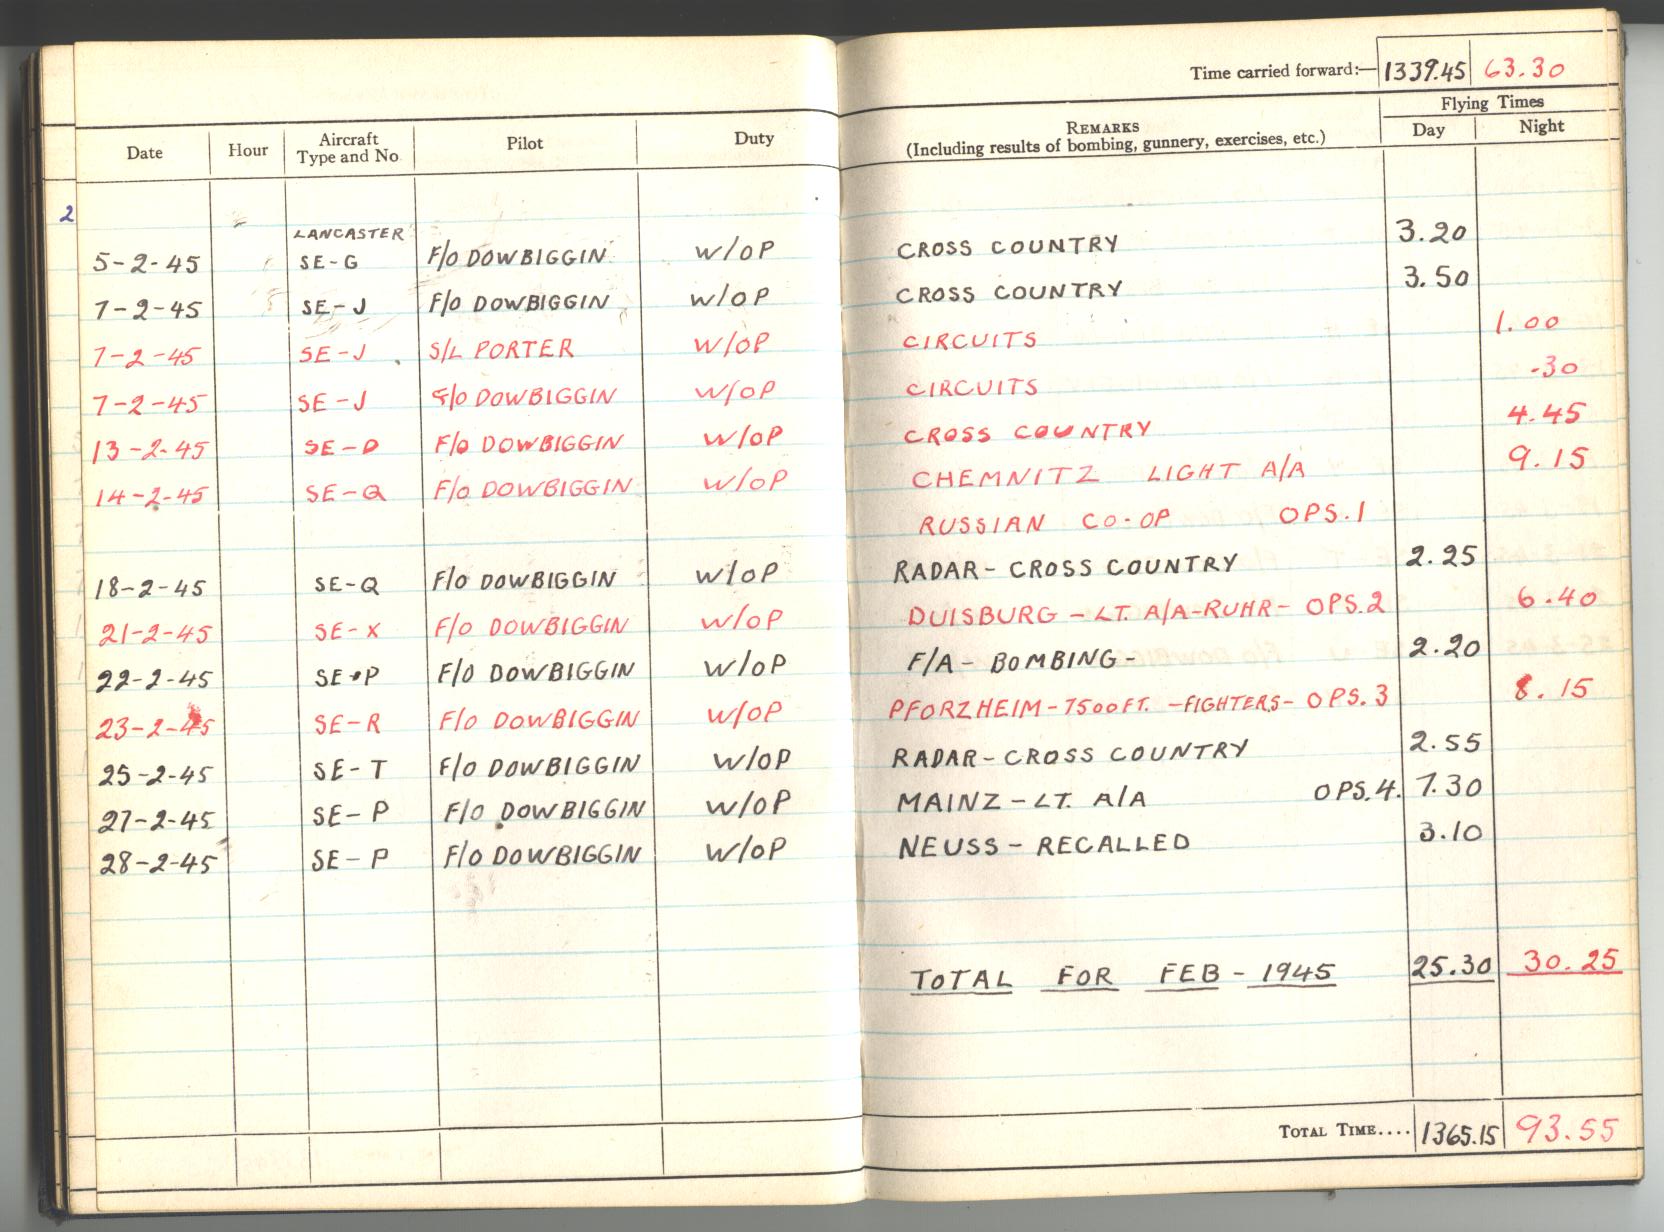 Time carried forward:— 1339.45 63.30
Date Hour Aircraft Type and No Pilot Duty REMARKS (Including results of bombing, gunnery, exercises, etc.) Flying Times Day Night
2
LANCASTER
5-2-45 SE-G F/O DOWBIGGIN W/OP CROSS COUNTRY 3.20
7-2-45 SE-J F/O DOWBIGGIN W/OP CROSS COUNTRY 3.50
7-2-45 SE-J S/L PORTER W/OP CIRCUITS 1.00
7-2-45 SE-J F/O DOWBIGGIN W/OP CIRCUITS -30
13-2-45 SE-D F/O DOWBIGGIN W/OP CROSS COUNTRY 4.45
14-2-45 SE-Q F/O DOWBIGGIN W/OP CHEMNITZ LIGHT A/A 9.15
RUSSIAN CO-OP OPS.1
18-2-45 SE-Q F/O DOWBIGGIN W/OP RADAR-CROSS COUNTRY 2.25
21-2-45 SE-X F/O DOWBIGGIN W/OP DUISBURG-LT. A/A-RUHR- OPS.2 6.40
22-2-45 SE-P F/O DOWBIGGIN W/OP F/A-BOMBING- 2.20
23-2-45 SE-R F/O DOWBIGGIN W/OP PFORZHEIM-7500FT.-FIGHTERS- OPS.3 8.15
25-2-45 SE-T F/O DOWBIGGIN W/OP RADAR-CROSS COUNTRY 2.55
27-2-45 SE-P F/O DOWBIGGIN W/OP MAINZ-LT. A/A OPS.4. 7.30
28-2-45 SE-P F/O DOWBIGGIN W/OP NEUSS-RECALLED 3.10
TOTAL FOR FEB-1945 25.30 30.25
TOTAL TIME.... 1365.15 93.55